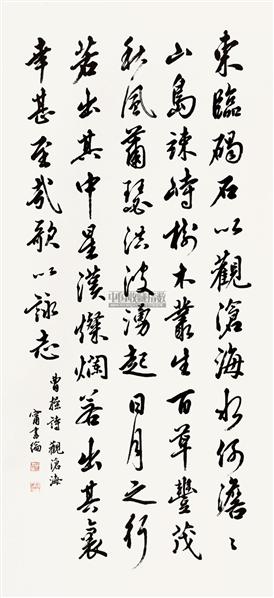 東臨碣石以觀滄海水何澹〻
山島竦峙樹木叢生百草豐茂
秋風蕭瑟洪波湧起日月之行
若出其中星漢燦爛若出其裏
幸甚至哉歌以詠志
曹操詩 觀滄海
甯書綸